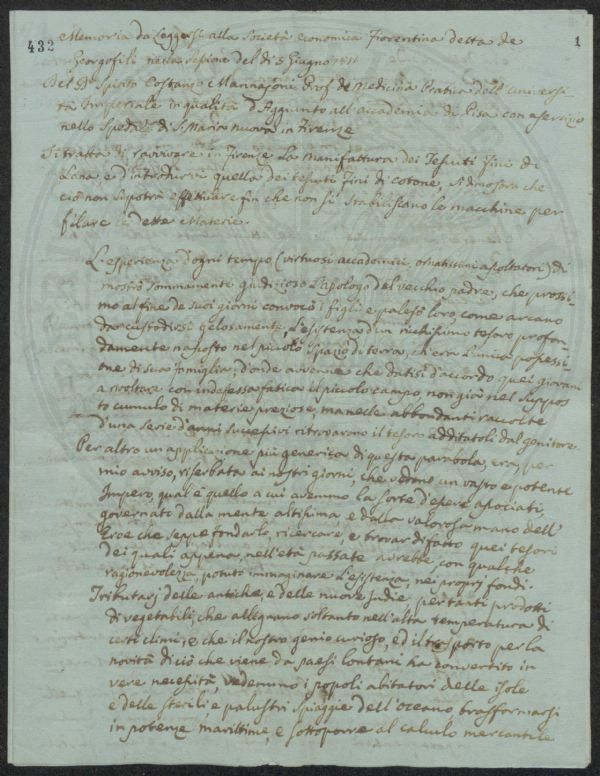 432
1
Memoria da Leggersi alla Società economica Fiorentina detta de
Georgofili nella sessione del di 5 Giugno 1811
Del D.r Spirito Costanzo Mannajoni Prof. di Medicina Pratica dell'Universi-
tà Imperiale in qualità d'Aggiunto all'accademia di Pisa con eservizio
nello Spedale di S. Maria nuova in Firenze
Si tratta di ravvivare in Firenze La manifattura dei Tessuti fini di
Lana, ed introdurvi quella dei tessuti fini di cotone, Si dimostra che
ciò non si potrà effettuare fin che non si stabiliscano le macchine per
filare le dette Materie.
L'esperienza d'ogni tempo (virtuosi accademici, ornatissimi ascoltatori) di
mostrò sommamente giudizioso L'apologo del vecchio padre, che prossi
mo al fine de suoi giorni convocò i figli e palesò loro, come arcano
da custodirsi gelosamente, L'esistenza d'un ricchissimo tesoro profon-
damente nascosto nel piccolo spazio di terra, ch'era L'unica possessi
one di sua famiglia; donde avvenne che datisi d'accordo quei giovani
a rivoltare con indefessa fatica il piccolo campo, non già nel suppos
to cumulo di materie preziose, ma nelle abbondanti raccolte
d'una serie d'anni successivi ritrovarono il tesoro additatoli dal genitore.
Per altro un applicazione più generica di questa parabola, era, per
mio avviso, riserbata ai nostri giorni, che vedono un vasto e potente
Impero, qual'è quello a cui avemmo la sorte d'essere associati,
governati dalla mente altissima e dalla valorosa mano dell'
Eroe che seppe fondarlo, ricercare, e trovar di fatto quei tesori
dei quali appena, nell'età passate avrebbe, con qualche
ragionevolezza, potuto immaginare L'esistenza, nei proprj fondi.
Tributarj delle antiche, e delle nuove Indie per tanti prodotti
di vegetabili, che allegnano soltanto nell'alta temperatura di
certi climi, e che il nostro genio curioso, ed il trasporto per la
novità di ciò che viene da paesi lontani ha convertito in
vere necessità, vedemmo i popoli abitatori delle isole
e delle sterili e palustri spiaggie dell'oceano trasformarsi
in potenze marittime, e sottoporre al calculo mercantile